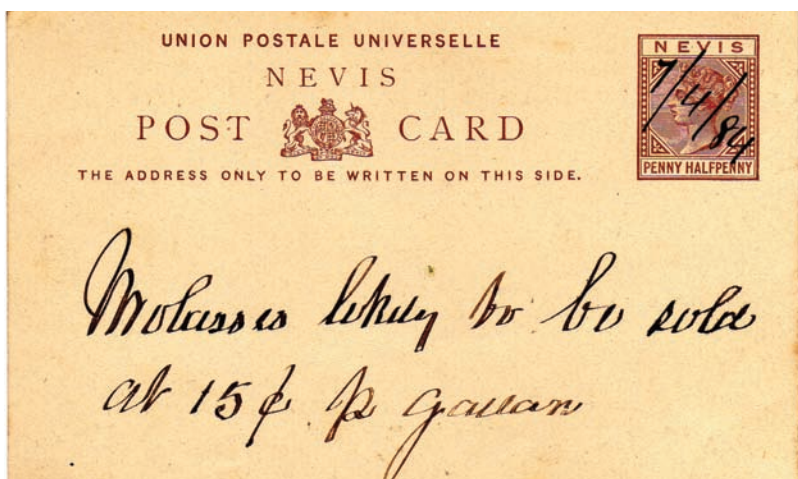 UNION POSTALE UNIVERSELLE
NEVIS
POST CARD
THE ADDRESS ONLY TO BE WRITTEN ON THIS SIDE.
NEVIS
7/4/84
PENNY HALFPENNY
Molasses likely to be sold
at 15¢ p gallon